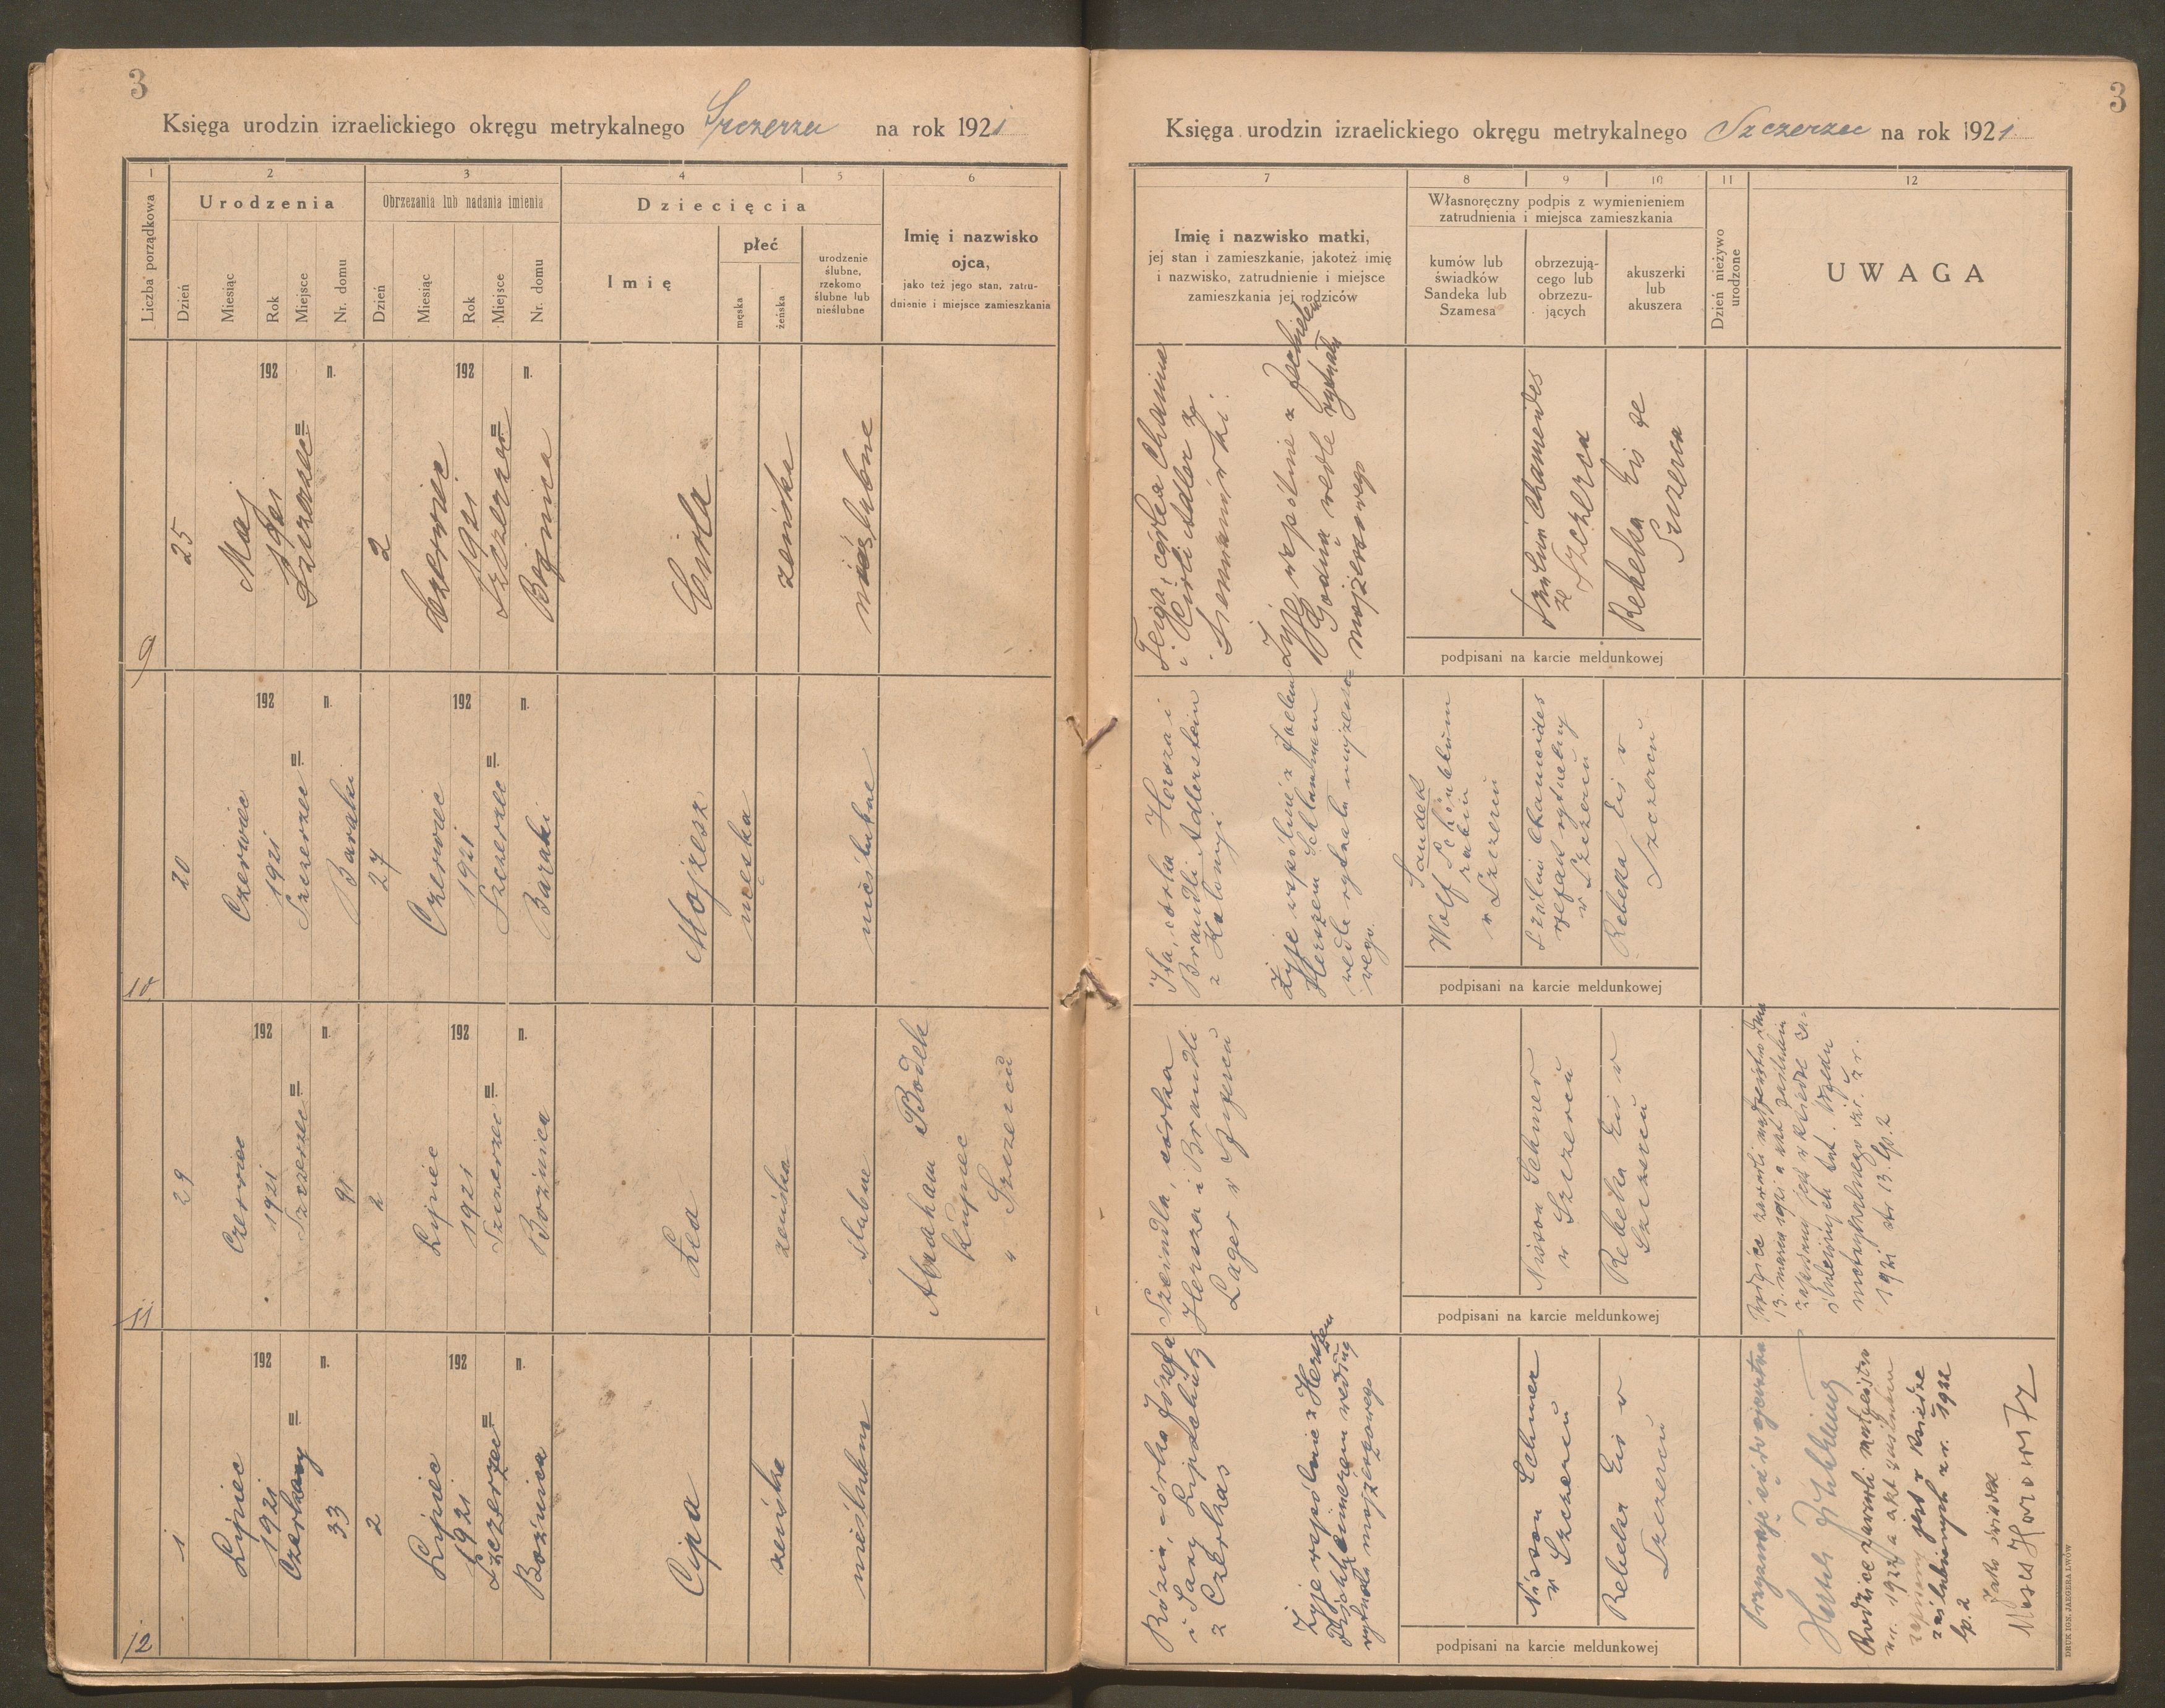 3
Księga urodzin izraelickiego okręgu metrykalnego Szczerzec na rok 1921
1
2
3
4
5
6
Liczba porządkowa
Urodzenia
Obrzezania lub nadania imienia
Dziecięcia
Imię i nazwisko
ojca,
jako też jego stan, zatru-
dnienie i miejsce zamieszkania
Dzień
Miesiąc
Rok
Miejsce
Nr. domu
Dzień
Miesiąc
Rok
Miejsce
Nr. domu
Imię
płeć
męska
żeńska
urodzenie
ślubne,
rzekomo
ślubne lub
nieślubne
9
25
192 n.
Maj
1921
Szczerzec
2
192 n.
Czerwiec
1921
Szczerzec
Bożnica
Cirla
żeńska
nieślubne
10
20
192 n.
Czerwiec
1921
Szczerzec
Baraki
27
192 n.
Czerwiec
1921
Szczerzec
Baraki
Mojżesz
męska
nieślubne
11
29
192 n.
Czerwiec
1921
Szczerzec
91
2
192 n.
Lipiec
1921
Szczerzec
Bożnica
Lea
żeńska
ślubne
Abraham Bodek
kupiec
w Szczercu
12
1
192 n.
Lipiec
1921
Czerkasy
33
2
192 n.
Lipiec
1921
Szczerzec
Bożnica
Cipa
żeńska
nieślubne
3
Księga urodzin izraelickiego okręgu metrykalnego Szczerzec na rok 1921
7
8
9
10
11
12
Imię i nazwisko matki,
jej stan i zamieszkanie, jakoteż imię
i nazwisko, zatrudnienie i miejsce
zamieszkania jej rodziców
Własnoręczny podpis z wymienieniem
zatrudnienia i miejsca zamieszkania
kumów lub
świadków
Sandeka lub
Szamesa
obrzezują-
cego lub
obrzezu-
jących
akuszerki
lub
akuszera
Dzień nieżywo
urodzone
UWAGA
Feiga, córka Chaima
i Cirli Adler ze
Żyje wspólnie z Jachielem
wedle rytuału
mojżeszowego
Szulim Chameides
ze Szczerca
Rebeka Eis ze
Szczerca
podpisani na karcie meldunkowej
Ita, córka Hersza i
Brandli Adlerstein
z
Żyje wspólnie z Joelem
Herszem
wedle rytuału mojżeszo-
wego.
Sandek
Wolf
rabin
w Szczercu
Szulim Chameides
rzezak rytualny
w Szczercu
Rebeka Eis w
Szczercu
podpisani na karcie meldunkowej
Szeindla, córka
Hersza i Brandli
Lager w Szczercu
Nison Schmer
w Szczercu
Rebeka Eis w
Szczercu
Rodzice zawarli małżeństwo dnia
13. marca 1921 a akt zaślubin
zapisany jest w księdze za-
ślubionych tut. Urzędu
metrykalnego z r.
1921 str 13. lp. 2
podpisani na karcie meldunkowej
Rózia, córka Józefa
i Sary Lipschütz
z Czerkas
Żyje wspólnie z Herszem
według
rytuału mojżeszowego
Nison Schmer
w Szczercu
Rebeka Eis w
Szczercu
Przyznaję się do ojcostwa
Rodzice zawarli małżeństwo
w r. 1922 a akt zaślubin
zapisany jest w księdze
zaślubionych z r. 1922
lp. 2
Jako świadek
Moses Horowitz
podpisani na karcie meldunkowej
DRUK IGN. JAEGERA LWÓW